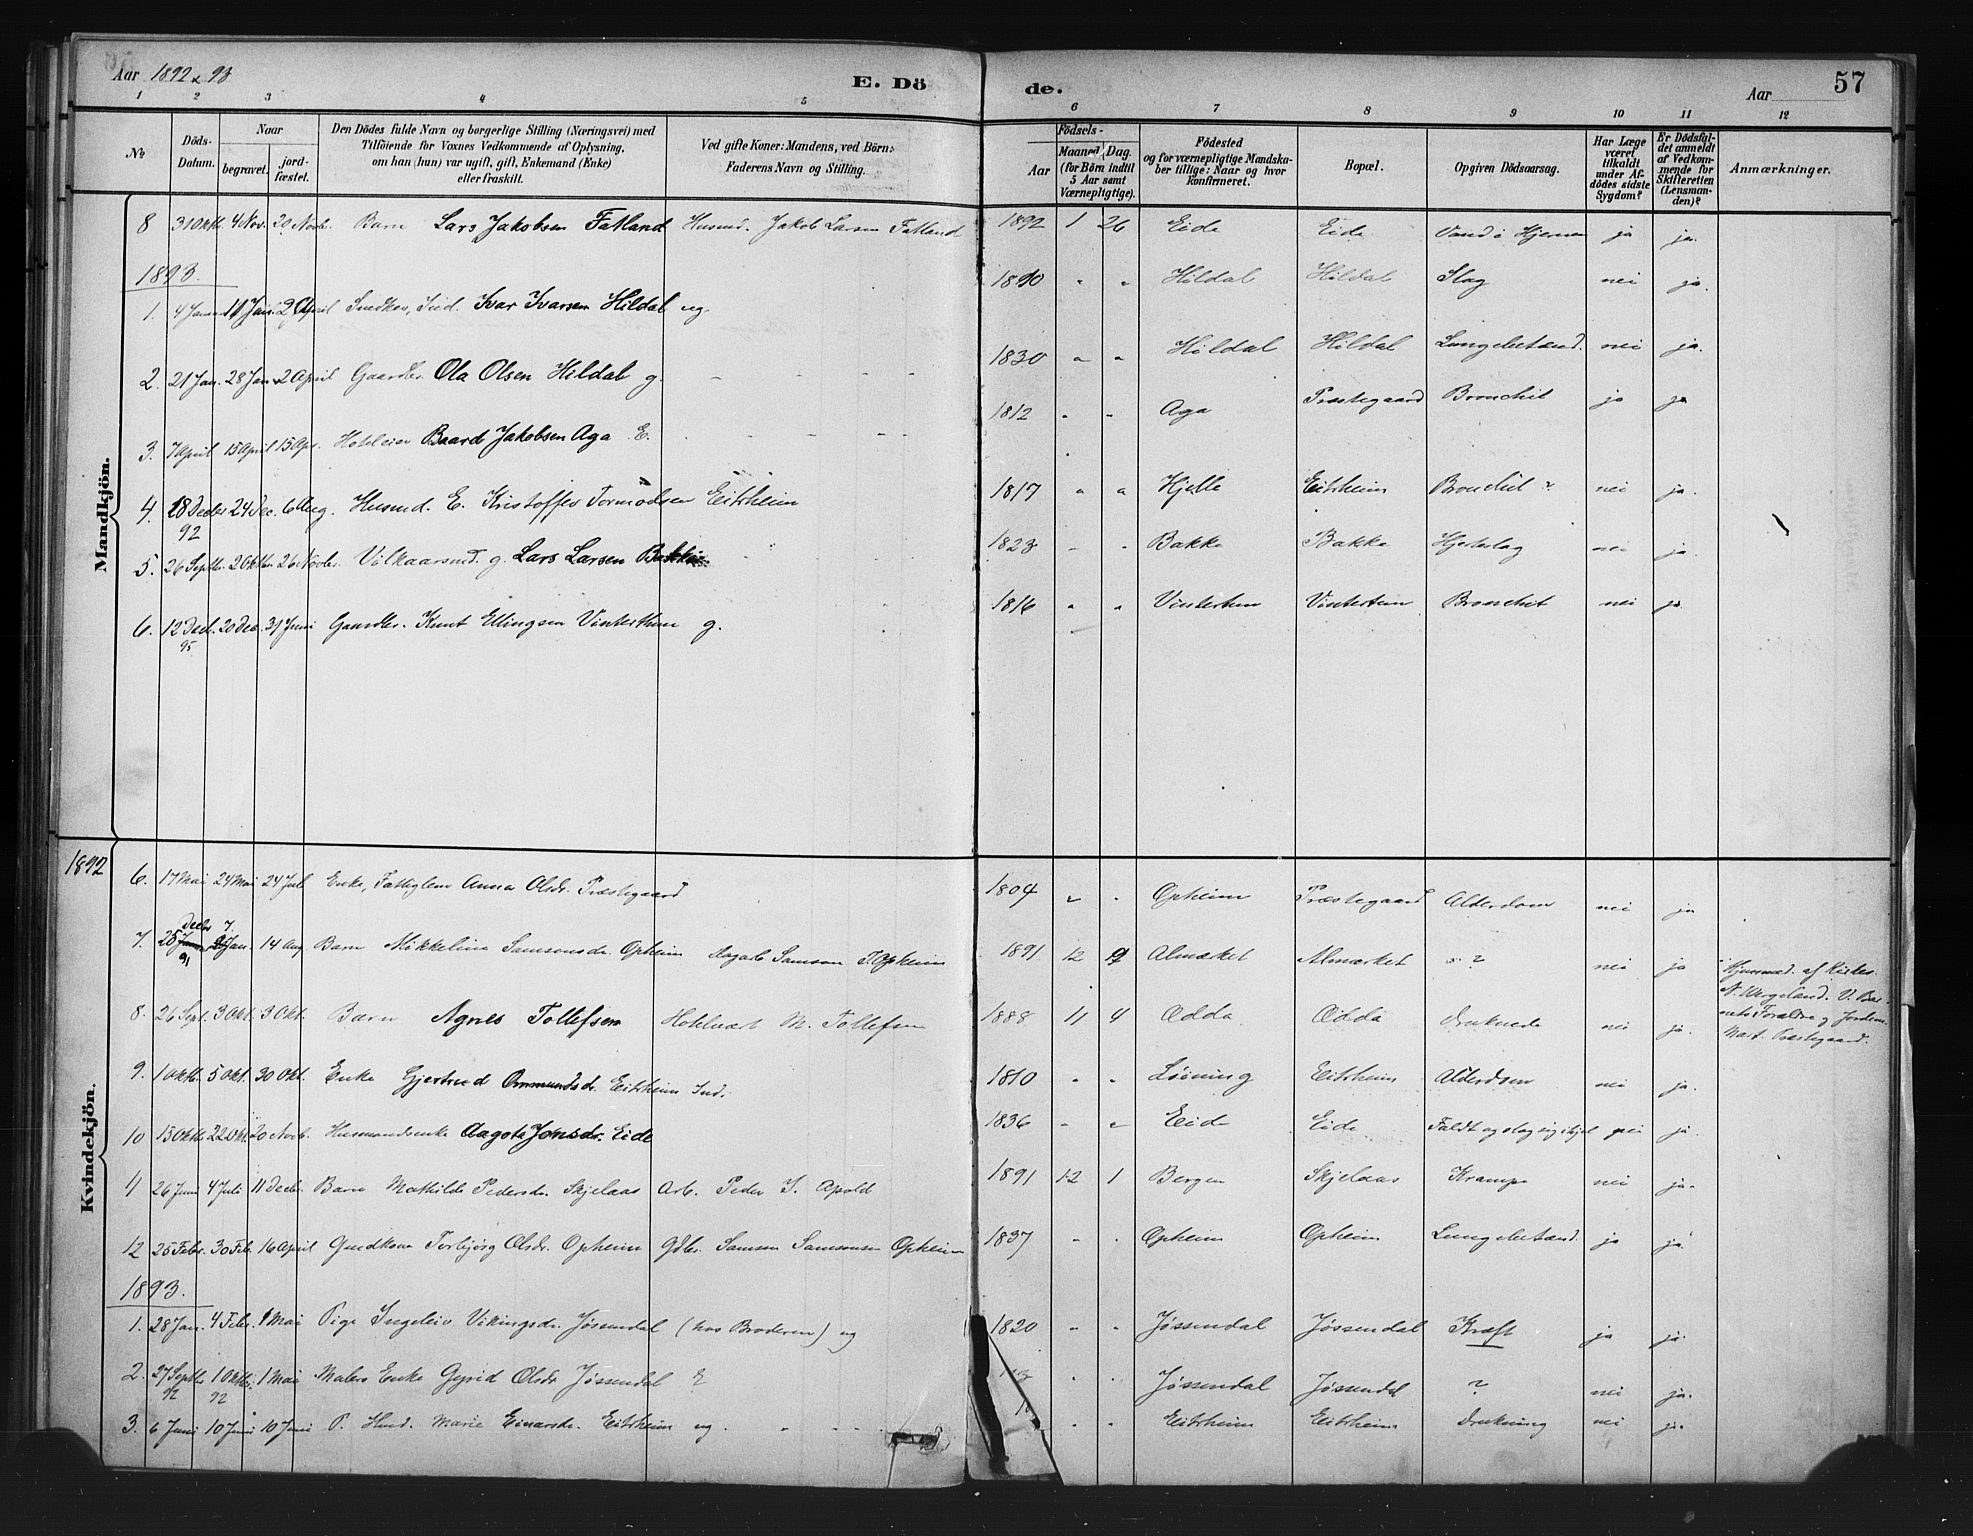 Aar 1892 & 93 E. Dö de. Aar 57
1 2 3 4 5 6 7 8 9 10 11 12
No Döds-Datum. Naar begravet. jordfæstet. Den Dödes fulde Navn og borgerlige Stilling (Næringsvei) med Tilföiende for Voxnes Vedkommende af Oplysning, om han (hun) var ugift, gift, Enkemand (Enke) eller fraskilt. Ved gifte Koner: Mandens, ved Börn: Faderens Navn og Stilling. Födsels- Aar Maaned Dag. (for Börn indtil 5 Aar samt Værnepligtige). Födested og for værnepligtige Mandskaber tillige: Naar og hvor konfirmeret. Bopæl. Opgiven Dödsaarsag. Har Læge været tilkaldt under Afdödes sidste Sygdom? Er Dödsfaldet anmeldt af Vedkommende for Skifteretten (Lensmanden)? Anmærkninger.
Mandkjön.
8 31 Okt. 4 Nov. 20 Novb. Barn Lars Jakobsen Fatland Husmd. Jakob Larsen Fatland 1892 1 26 Eide Eide Vand i Hjernen ja ja.
1893.
1. 4 Janu 11 Jan. 2 April Ind. Ivar Ivarsen Hildal ug. 1890 " " Hildal Hildal Slag nei ja.
2. 21 Jan. 28 Jan 2 April Gaardbr. Ola Olsen Hildal g. 1830 " " Hildal Hildal Lungebetænd. nei ja.
3. 7 April 15 April 15 Apr. Hoteleier Baard Jakobsen Aga E. 1812 " " Aga Præstegaard Bronchit ja ja
4. 18 Decbr 92 24 Dec. 6 Aug. Husmd. E. Kristoffer Tormodsen Eitrheim 1817 " " Hjelle Eitrheim Bronchit ? nei ja.
5. 26 Septbr. 2 Oktbr. 26 Novbr. Vilkaarsmd. g. Lars Larsen Bakke 1823 " " Bakke Bakke Hjerteslag nei ja.
6. 12 Decb. 95 20 Dec. 31 Juni Gaardbr. Knut Ellingsen Vinterthun g. 1816 " " Vintertun Vintertun Bronchit nei ja
Kvindekjön.
1892
6. 17 Mai 24 Mai 24 Juli Enke, Fattiglem Anna Olsdr. Præstegaard 1804 " " Opheim Præstegaard Alderdom nei ja
7. 25 Decbr 91 7. Jan. 14 Aug Barn Mikkelina Samsonsdr. Opheim Samson T. Opheim 1891 12 9 Almærket Almærket ? nei ja Hjemmed. af Kirkes. N. Wergeland. V. Barnets Foraldre og Jordem. Mart. Præstegaard.
8. 26 Sept. 3 Okt. 3 Okt. Barn Agnes Tollefsen Hotelvært M. Tollefsen 1888 11 4 Odda Odda Druknede nei ja.
9. 1 Oktb. 5 Okt. 30 Okt. Enke Gjertrud Ommundsdr. Eitrheim Ind. 1810 " " Löining Eitrheim Alderdom nei ja.
10 15 Oktb. 22 Okt. 20 Novb. Husmandsenke Aagota Jonsdr. Eide 1836 " " Eide Eide Faldt og slog sig ihjel nei ja.
11 26 Juni 4 Juli 11 Decbr. Barn Mathilde Pedersdr. Skjelaas Arb. Peder J. Apold 1891 12 1 Bergen Skjelaas Krampe nei ja.
12 25 Febr. 30 Feb. 16 April Gmdkone Torbjörg Olsdr. Opheim Gdbr. Samson Samsonsen Opheim 1837 " " Opheim Opheim Lungebetænd. ja ja.
1893.
1. 28 Jan. 4 Febr. 1 Mai Pige Ingeleiv Vikingsdr. Jössendal (hos Broderen) ug 1820 " " Jössendal Jössendal Kræft ja ja.
2. 27 Septbr 92 1 Oktbr. 92 1 Mai Enke Gyrid Olsdr Jössendal E " " Jössendal Jössendal ? nei ja.
3. 6 Juni 10 Juni 10 Juni P. Husmd. Marie Einarsdr. Eitrheim ug. " " Eitrheim Eitrheim Drukning nei ja.